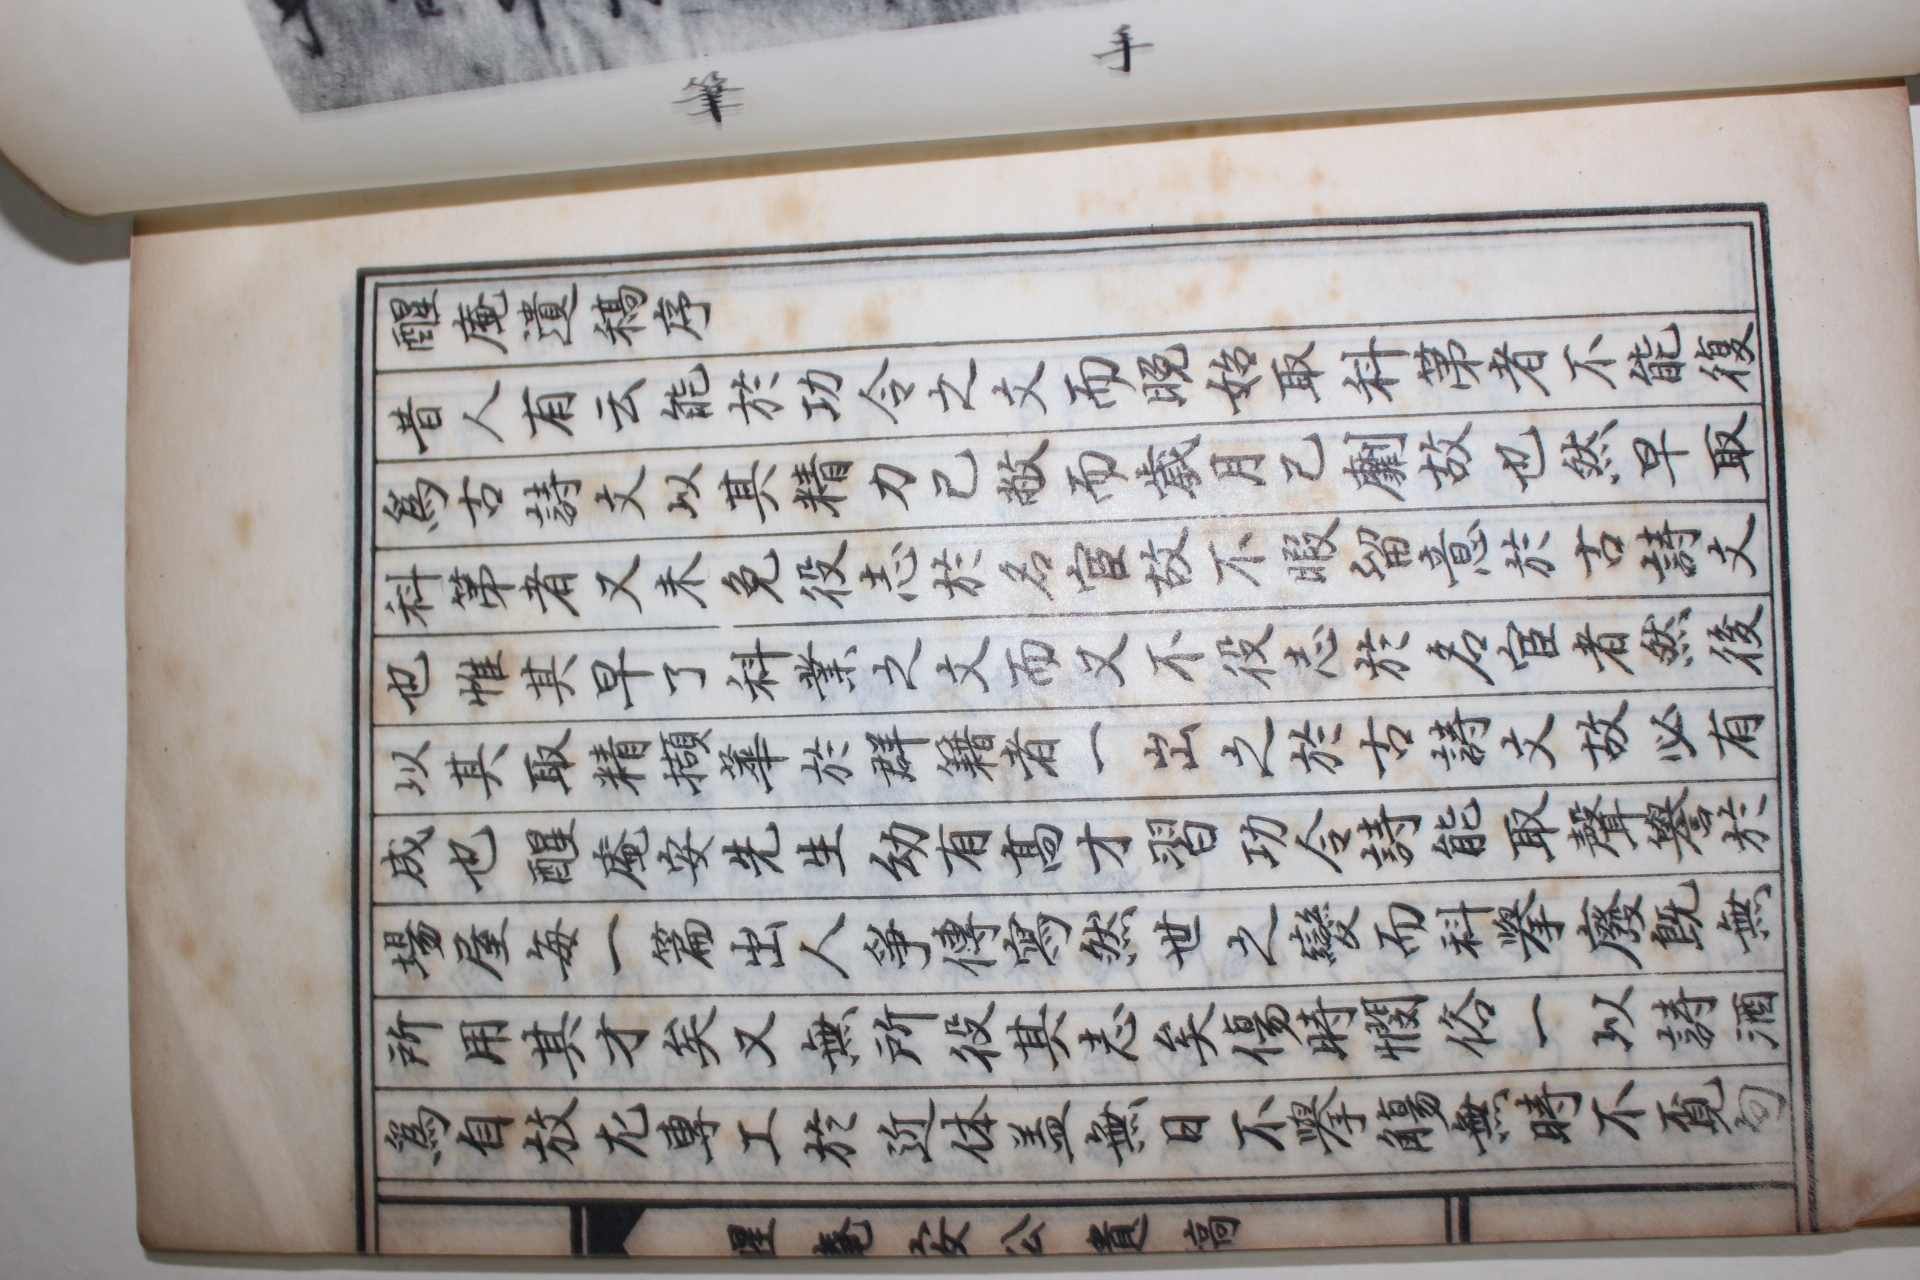 手筆
醒庵遺稿序
昔人有云能於功令之文而晚始取科第者不能復
爲古詩文以其精力已敝而歲月已劘故也然早取
科第者又未免役志於名宦故不暇留意於古詩文
也惟其早了科業之文而又不役志於名宦者然後
以其取精擷華於群籍者一出之於古詩文故必有
成也醒庵安先生幼有高才習功令詩能取聲譽於
場屋每一篇出人爭傳寫然世之變而科擧廢旣無
所用其才矣又無所役其志矣傷時憫俗一以詩酒
爲自放尤專工於近体盖無日不擧觴無時不覓句
醒庵安公遺稿